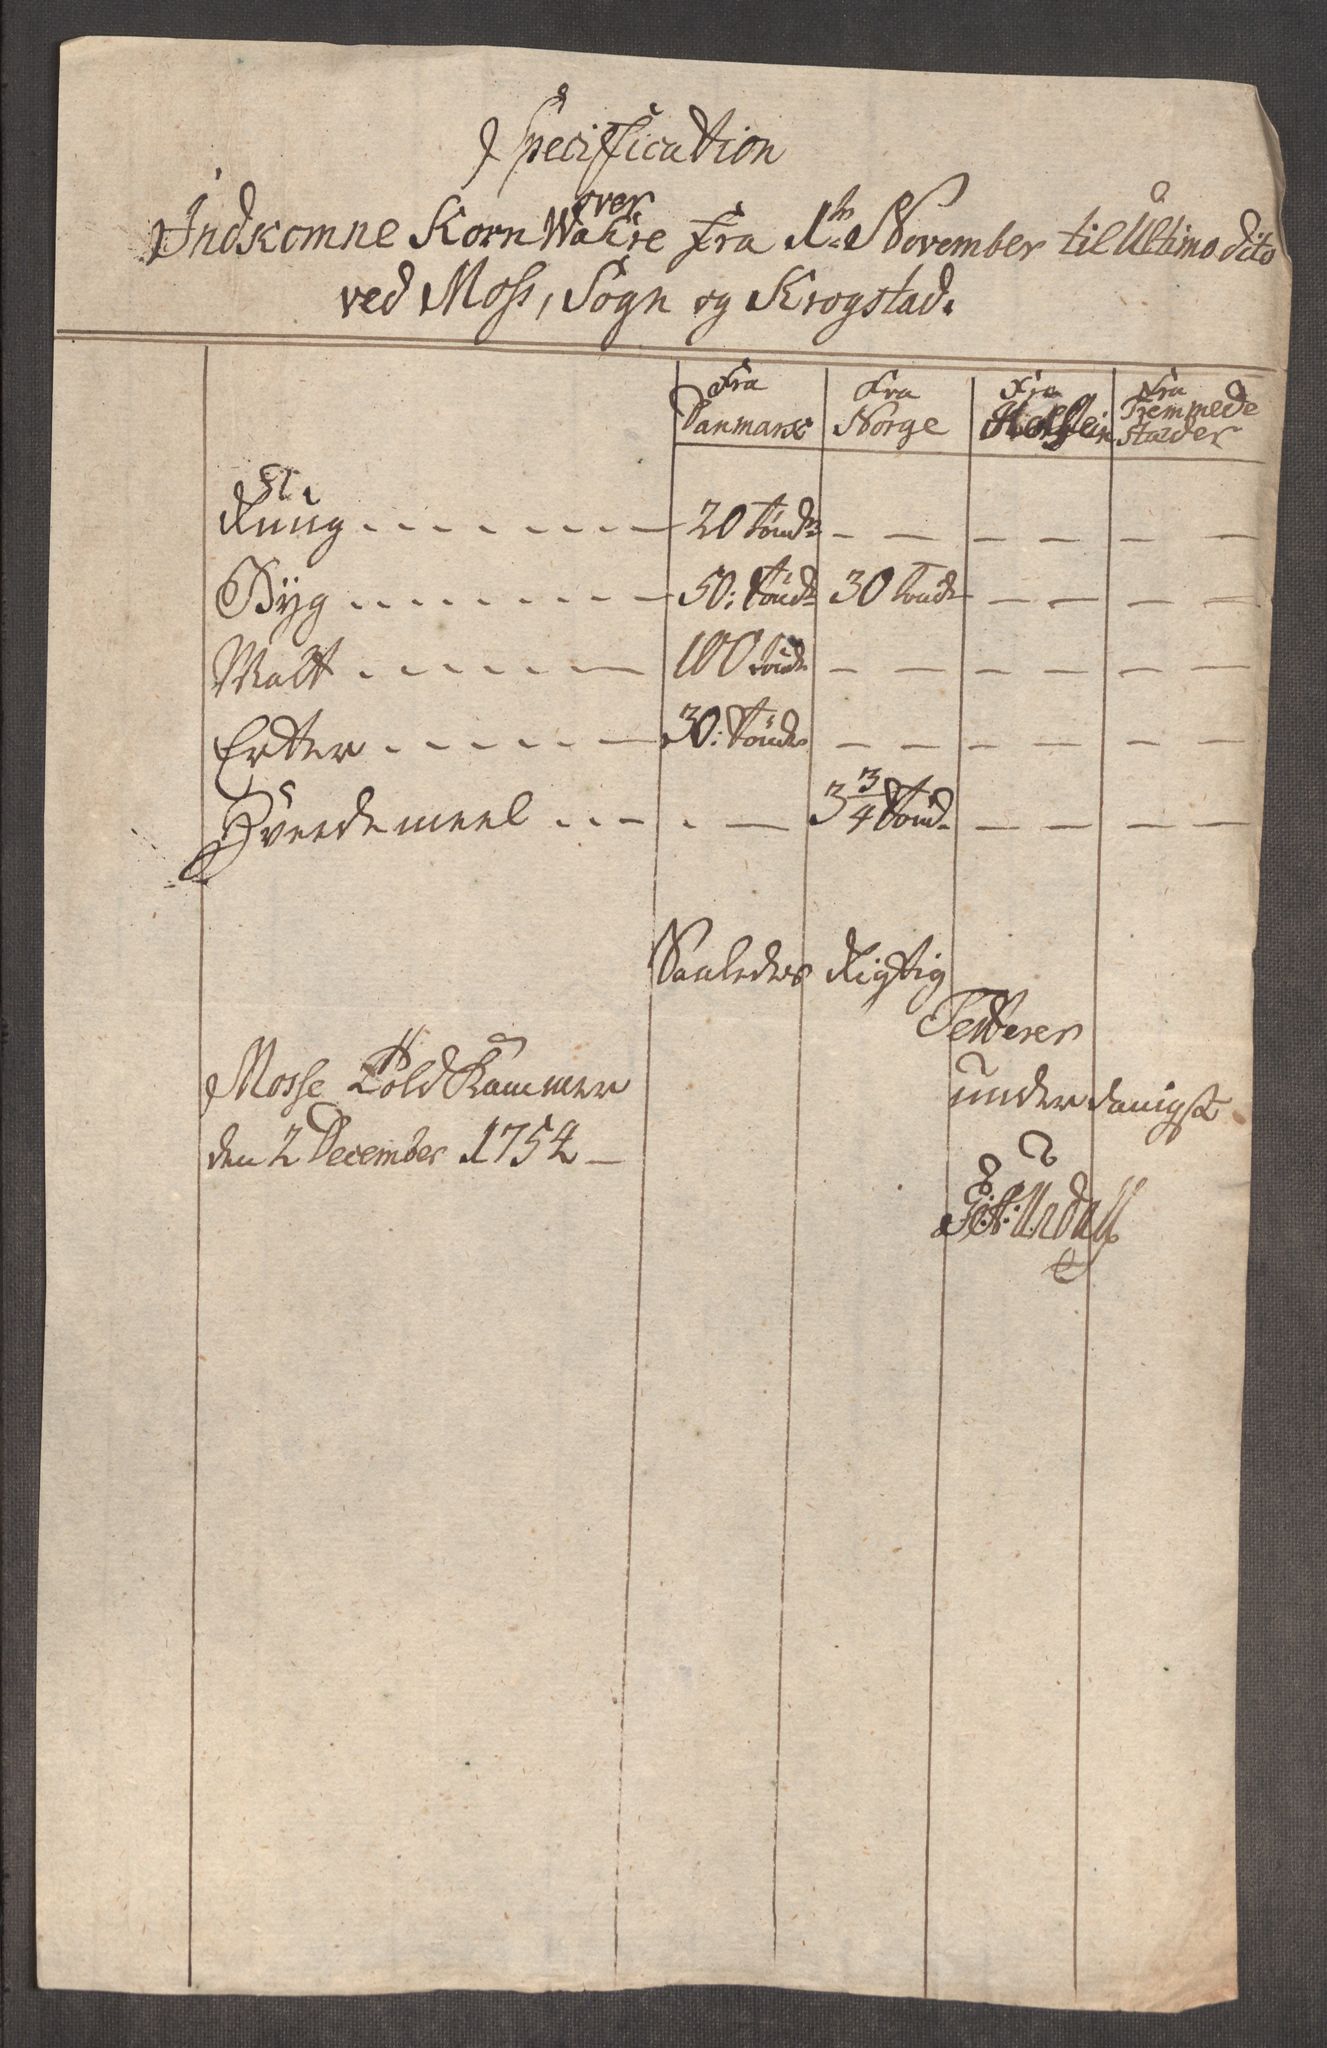 Specification
over
Indkomne Korn Wahre Fra 1ste November til Ultimo dito
ved Moss, Sogn og Krogstad.
Fra Danmark Fra Norge Fra Holstein Fra Fremmede stæder
Rüüg 20 tönd - - - - - -
Byg 50: tönd 30 tönd - - - -
Malt 100 tönd - - - - - -
Erter 30: tönd - - - - - -
Hvedemeel - 3 3/4 tönd - - - -
Saaledes Rigtig
Testerer
underdanigst
Mosse Told Kammer
den 2 December 1754